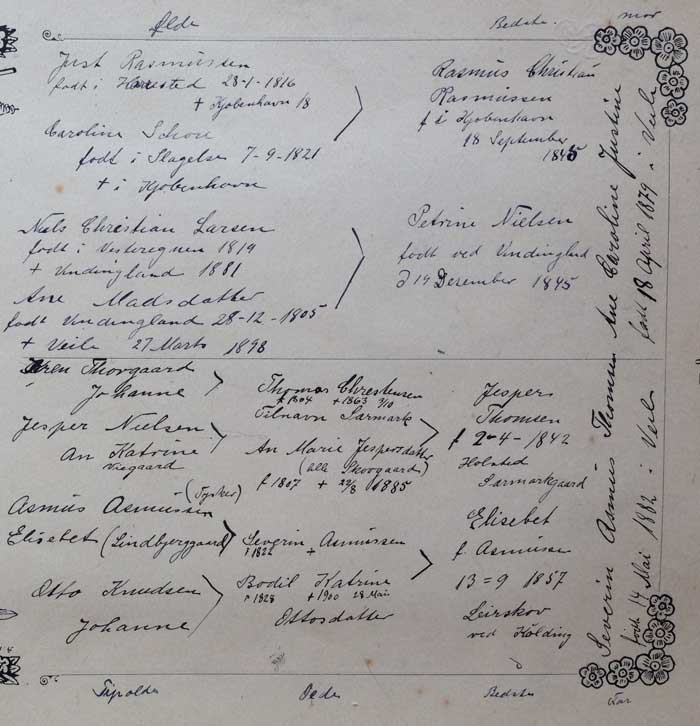 Olde
Bedste.
mor
Just Rasmussen
født i Harested 28-1-1816
+ Kjøbenhavn 18
Caroline Schou
født i Slagelse 7-9-1821
+ i Kjøbenhavn
Rasmus Christian
Rasmussen
f i Kjøbenhavn
18 September
1845
Niels Christian Larsen
født i Vesteregnen 1819
+ Vindingland 1881
Ane Madsdatter
født Vindingland 28-12-1805
+ Veile 27 Marts 1898
Petrine Nielsen
født ved Vindingland
d 14 Desember 1845
Søren Thorgaard
Johanne
Jesper Nielsen
An Katrine
Thomas Christensen
f 1804 + 1863 3/10
Tilnavn Sarmark
An Marie Jespersdatter
(alle Skovgaard)
f 1807 + 29/8 1885
Jespers
Thomsen
f 2-4-1842
Holsted
Sarmarkgaard
Asmus Asmussen (Tysker)
Elisebet (Lindbjerggaard)
Otto Knudsen
Johanne
Severin Asmussen
f 1822 +
Bodil Katrine
f 1828 + 1900 28 Mai
Ottosdatter
Elisebet
f. Asmussen
13=9 1857
Leirskov
ved Kolding
Ane Caroline Justine
født 18 April 1879 i Veile
Severin Asmus Thomsen
født 14 Mai 1882 i Veile
Tipolde
Oelde
Bedste
Far